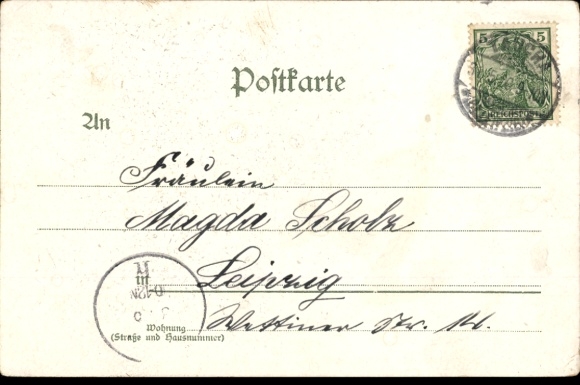 5 5
Postkarte
An
Fräulein
Magda Scholz
Leipzig
Wettiner Str.
Wohnung
(Straße und Hausnummer)